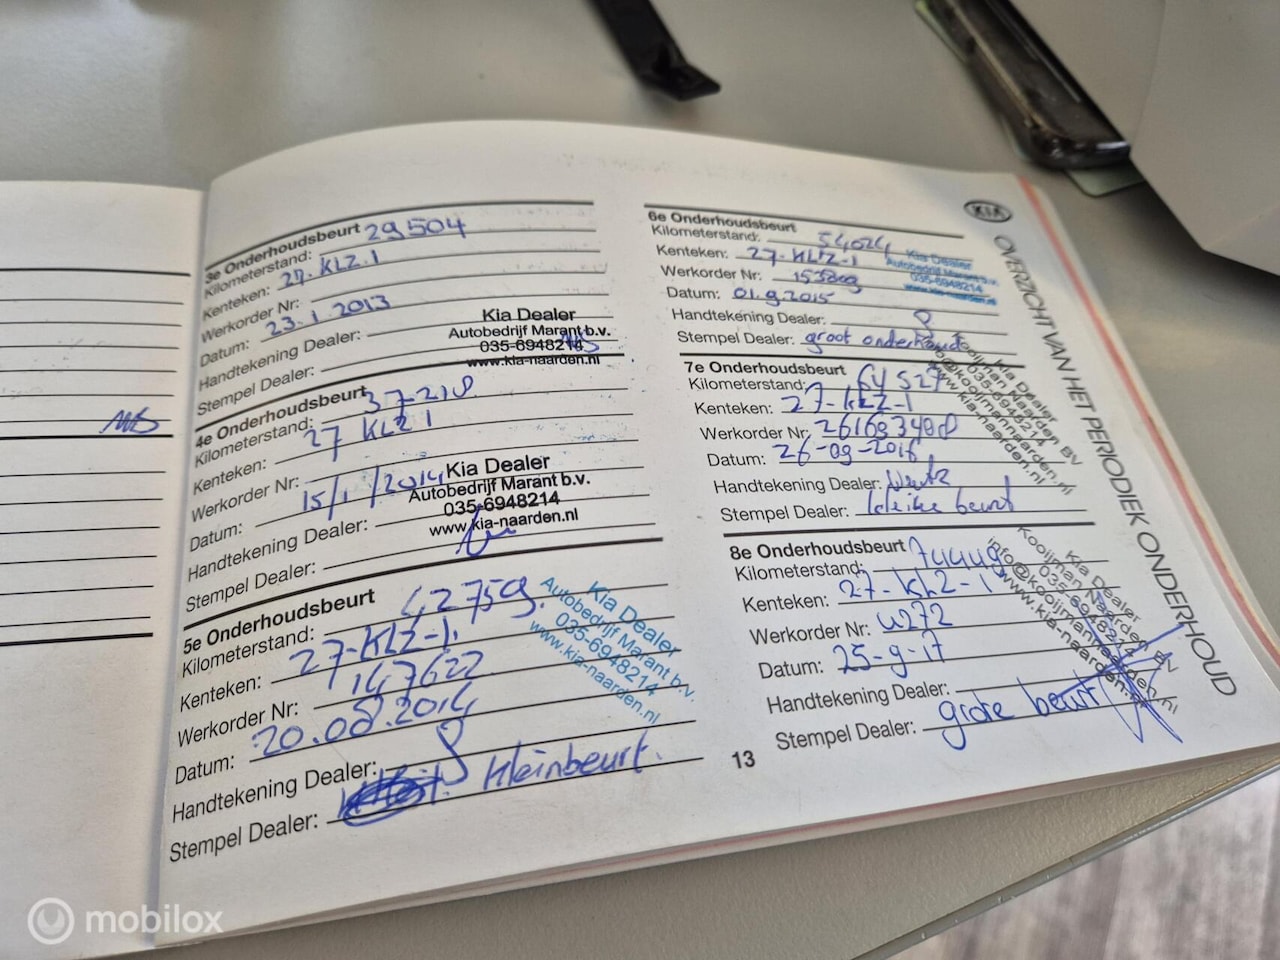 3e Onderhoudsbeurt
Kilometerstand: 29504
Kenteken: 27.KLZ.1
Werkorder Nr:
Datum: 23.1.2013
Handtekening Dealer:
Stempel Dealer:
Kia Dealer
Autobedrijf Marant b.v.
035-6948214
www.kia-naarden.nl
4e Onderhoudsbeurt
Kilometerstand: 37218
Kenteken: 27 KLZ 1
Werkorder Nr:
Datum: 15/1/2014
Handtekening Dealer:
Stempel Dealer:
Kia Dealer
Autobedrijf Marant b.v.
035-6948214
www.kia-naarden.nl
5e Onderhoudsbeurt
Kilometerstand: 42759.
Kenteken: 27-KLZ-1.
Werkorder Nr: 147622
Datum: 20.08.2014
Handtekening Dealer:
Stempel Dealer: Kleinbeurt.
Kia Dealer
Autobedrijf Marant b.v.
035-6948214
www.kia-naarden.nl
6e Onderhoudsbeurt
Kilometerstand: 54024
Kenteken: 27-KLZ-1
Werkorder Nr:
Datum: 01.9.2015
Handtekening Dealer:
Stempel Dealer: groot onderhoud
Kia Dealer
Autobedrijf Marant b.v.
035-6948214
www.kia-naarden.nl
7e Onderhoudsbeurt
Kilometerstand: 64527
Kenteken: 27-KLZ-1
Werkorder Nr:
Datum: 26-09-2016
Handtekening Dealer:
Stempel Dealer: kleine beurt
Kia Dealer
Kooijman Naarden BV
035-6948214
info@kooijmannaarden.nl
www.kia-naarden.nl
8e Onderhoudsbeurt
Kilometerstand:
Kenteken: 27-KLZ-1
Werkorder Nr: 4272
Datum: 25-9-17
Handtekening Dealer:
Stempel Dealer: grote beurt
Kia Dealer
Kooijman Naarden BV
035-6948214
info@kooijmannaarden.nl
www.kia-naarden.nl
13
KIA
OVERZICHT VAN HET PERIODIEK ONDERHOUD
mobilox